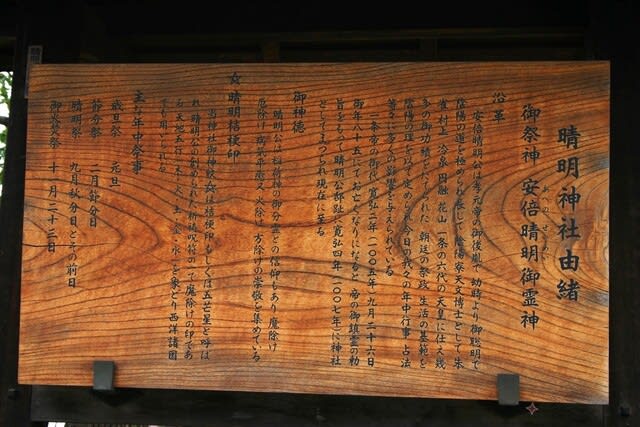 晴明神社由緒
御祭神 安倍晴明御霊神
あべのせいめい
沿革
安倍晴明公は孝元帝の御後胤で 幼時より御聡明で
陰陽の道を極められ 長じて陰陽寮天文博士として朱
雀 村上 冷泉 円融 花山 一条の六代の天皇に仕え 幾
多の御功績をたてられた 朝廷の祭政 生活の基範を
陰陽の理を以て定められ 今日の我々の年中行事・占法
等々に多くの影響を与えられている
一条帝の御代 寛弘二年(一〇〇五年)九月二十六日
御年八十五にてお亡くなりになると 帝の御鎮霊の勅
旨をもって 晴明公邸趾に寛弘四年(一〇〇七年)に神社
としてまつられ現在に至る
御神徳
晴明公は稲荷神の御分霊との信仰もあり 魔除け
厄除け 病気平癒 又 火除け 方除けの崇敬を集めている
☆ 晴明桔梗印
当神社の御神紋☆は桔梗印もしくは五芒星と呼ば
れ 晴明公が創められた祈祷呪符の一で魔除けの印であ
る 天地五行(木・火・土・金・水)を象どり 西洋諸国
でも用いられる
主な年中祭事
歳旦祭 元旦
節分祭 二月節分日
晴明祭 九月秋分日とその前日
御火焚祭 十一月二十三日